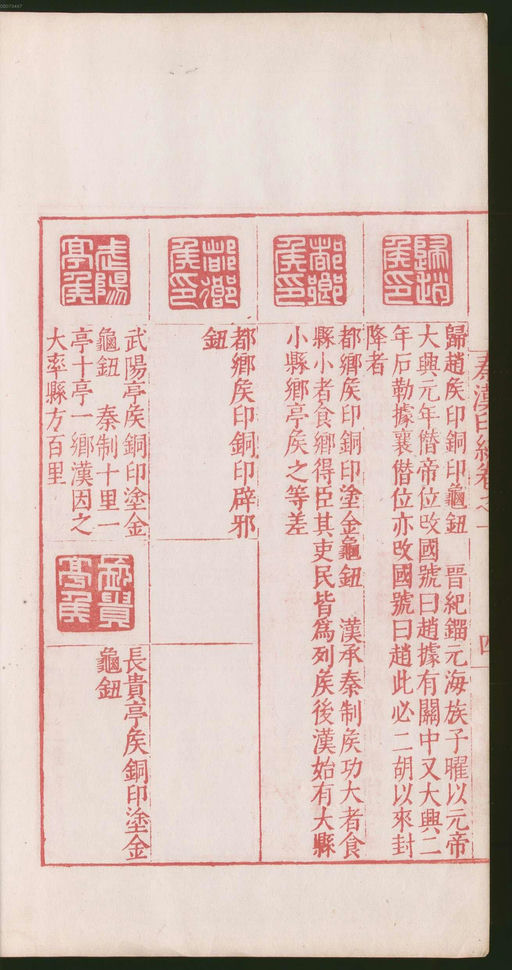 秦漢印統卷之一
四
歸趙矦印
歸趙矦印銅印龜鈕　晉紀鎦元海族子曜以元帝
大興元年僭帝位攺國號曰趙據有關中又大興二
年石勒據襄僭位亦攺國號曰趙此必二胡以來封
降者
都鄉矦印
都鄉矦印銅印塗金龜鈕　漢承秦制矦功大者食
縣小者食鄉得臣其吏民皆爲列矦後漢始有大縣
小縣鄉亭矦之等差
都鄉矦印
都鄉矦印銅印辟邪
鈕
武陽亭矦
武陽亭矦銅印塗金
龜鈕　秦制十里一
亭十亭一鄉漢因之
大率縣方百里
長貴亭矦
長貴亭矦銅印塗金
龜鈕